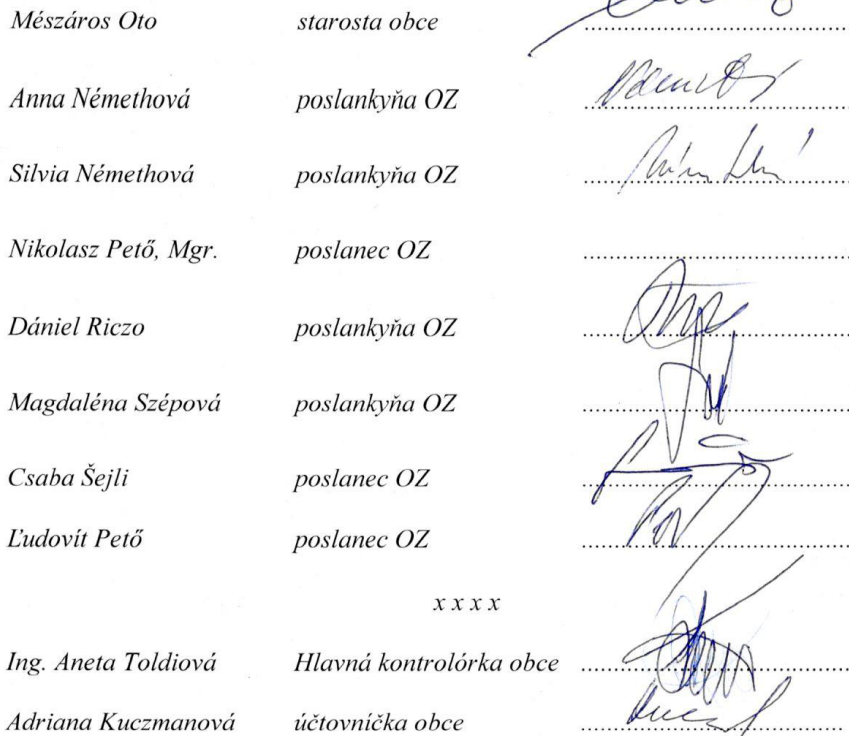 Mészáros Oto starosta obce
Anna Némethová poslankyňa OZ
Silvia Némethová poslankyňa OZ
Nikolasz Pető, Mgr. poslanec OZ
Dániel Riczo poslankyňa OZ
Magdaléna Szépová poslankyňa OZ
Csaba Šejli poslanec OZ
Ľudovít Pető poslanec OZ
x x x x
Ing. Aneta Toldiová Hlavná kontrolórka obce
Adriana Kuczmanová účtovníčka obce